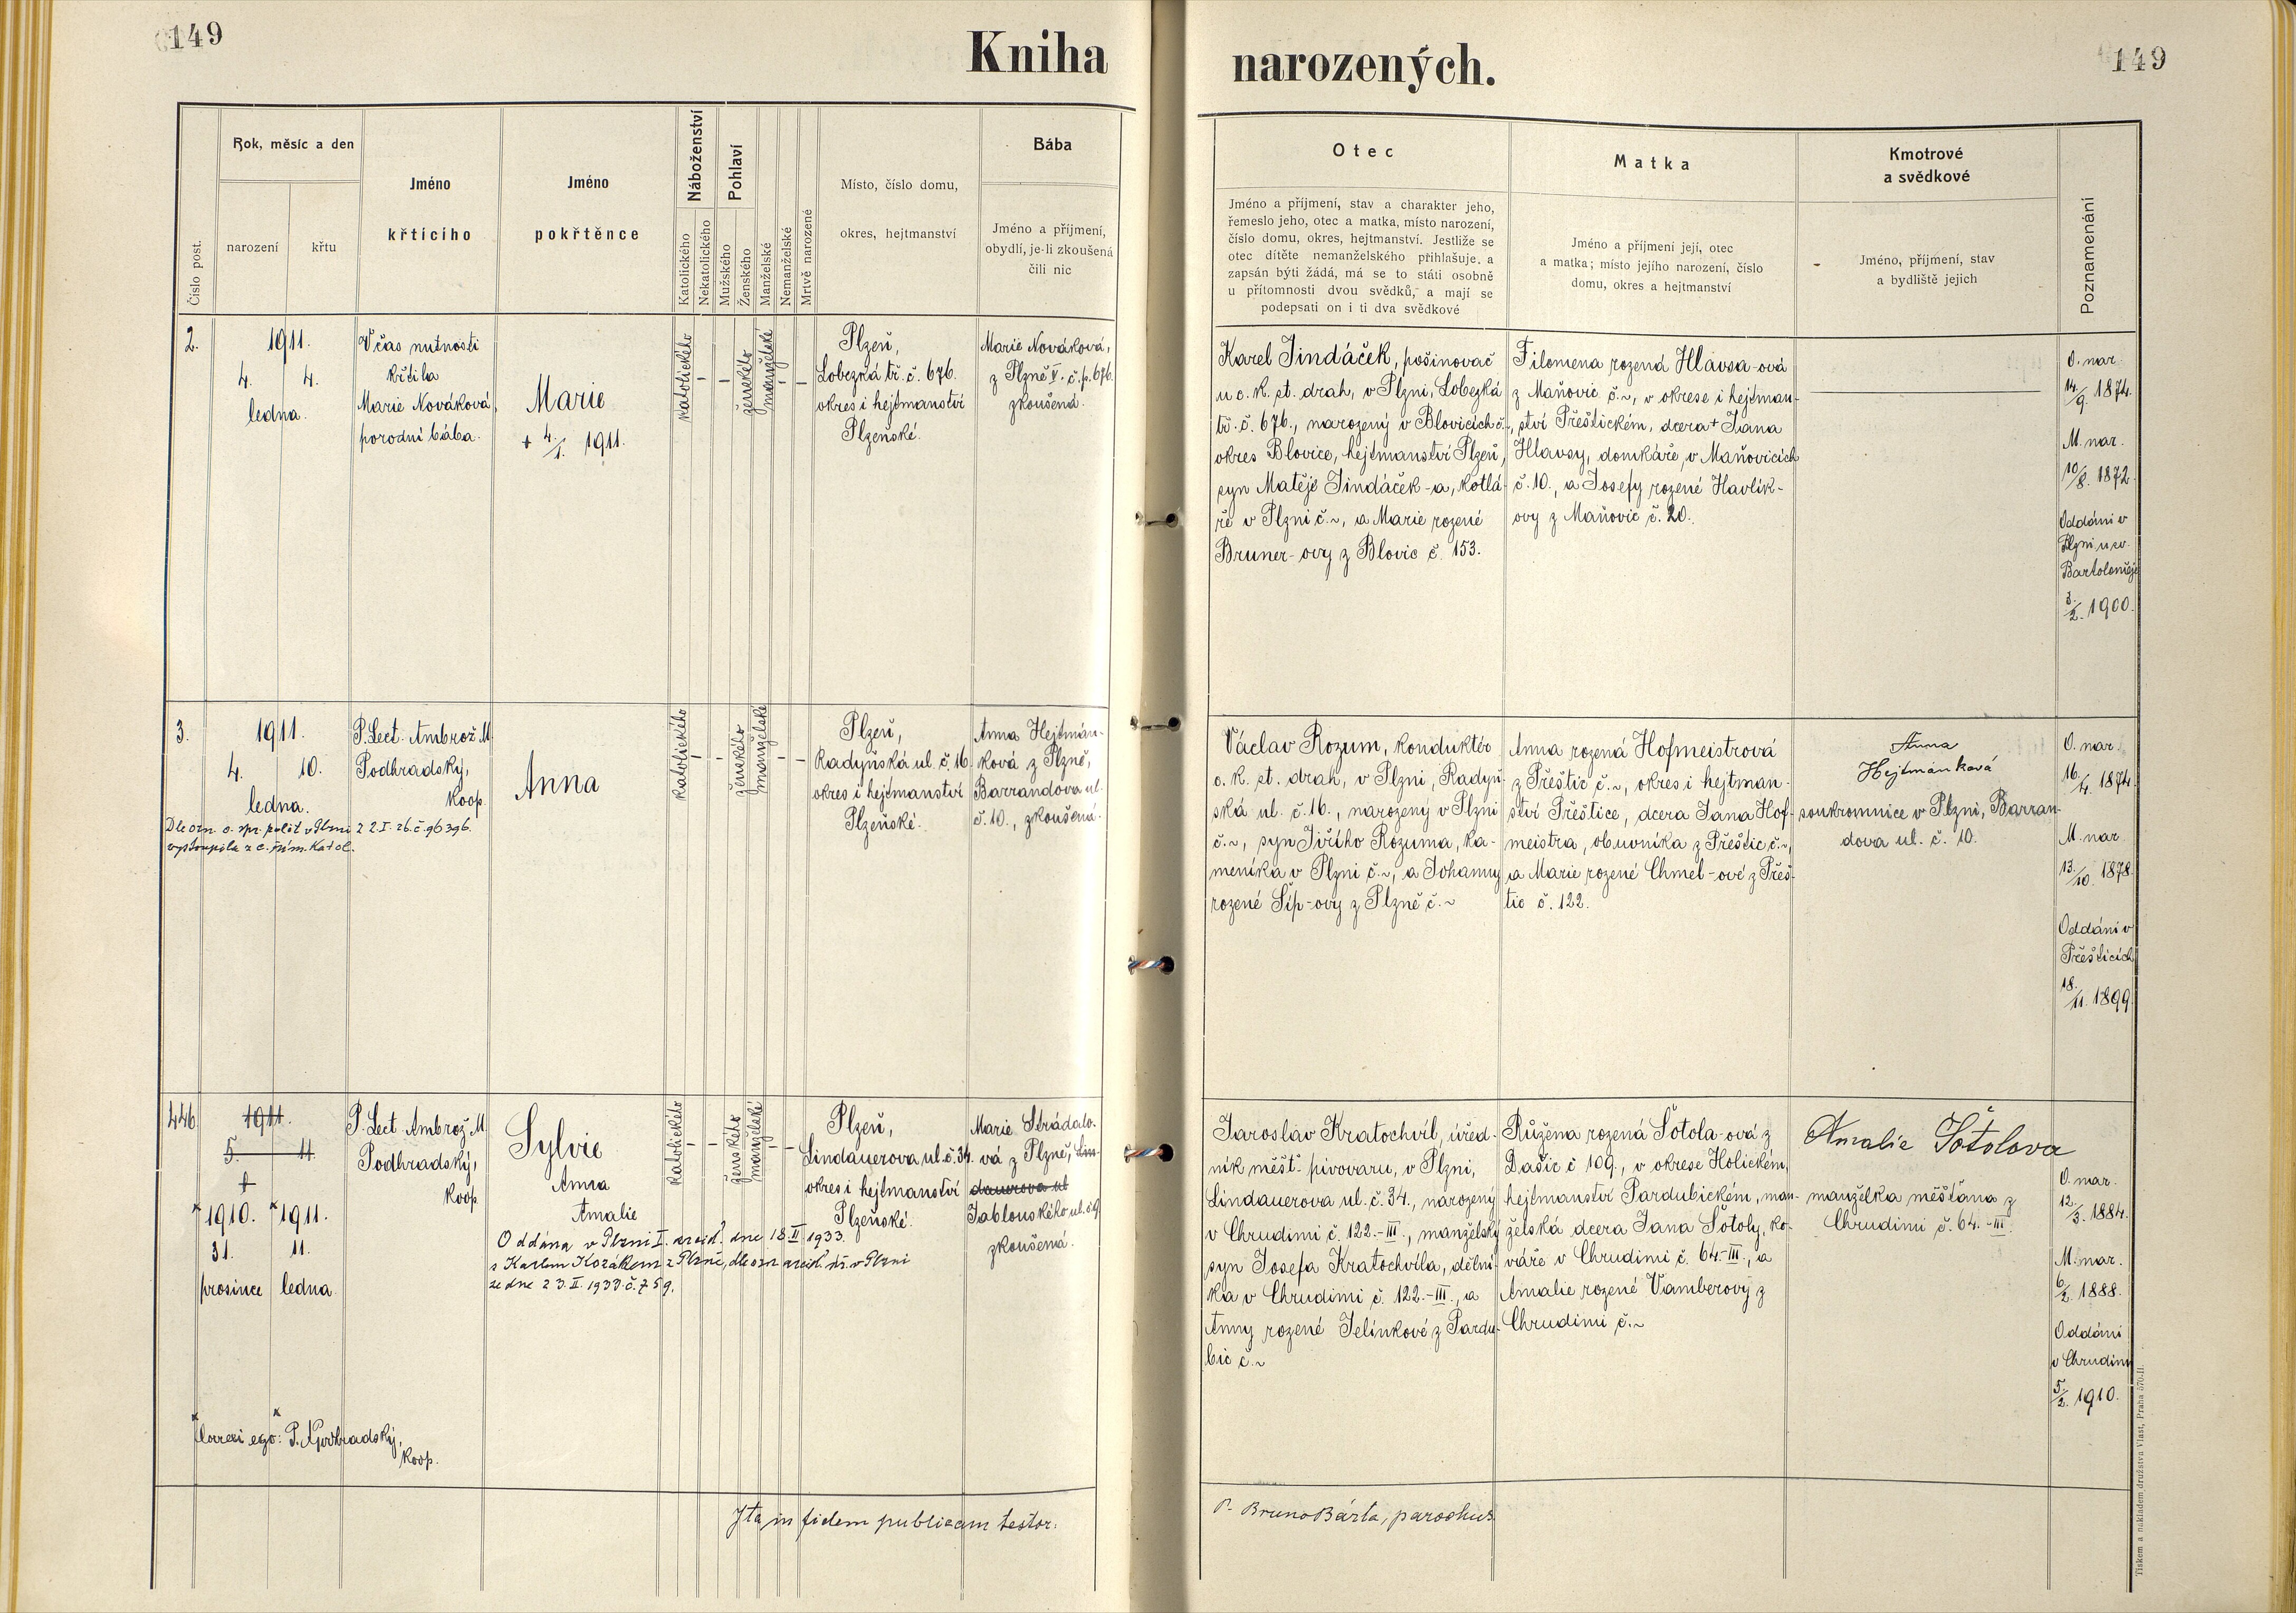 149
Kniha
narozených.
149
Číslo post.
Rok, měsíc a den
narození
křtu
Jméno
křtícího
Jméno
pokřtěnce
Náboženství
Katolického
Nekatolického
Pohlaví
Mužského
Ženského
Manželské
Nemanželské
Mrtvě narozené
Místo, číslo domu,
okres, hejtmanství
Bába
Jméno a příjmení,
obydlí, je-li zkoušená
čili nic
Otec
Jméno a příjmení, stav a charakter jeho,
řemeslo jeho, otec a matka, místo narození,
číslo domu, okres, hejtmanství. Jestliže se
otec dítěte nemanželského přihlašuje, a
zapsán býti žádá, má se to státi osobně
u přítomnosti dvou svědků, a mají se
podepsati on i ti dva svědkové
Matka
Jméno a příjmení její, otec
a matka; místo jejího narození, číslo
domu, okres a hejtmanství
Kmotrové
a svědkové
Jméno, příjmení, stav
a bydliště jejich
Poznamenání
2.
1911.
4. 4.
ledna.
V čas nutnosti
křtila
Marie Nováková,
porodní bába.
Marie
+ 4./1. 1911.
katolického
-
-
ženského
manželské
-
-
Plzeň,
Lobezká tř. č. 676.
okres i hejtmanství
Plzeňské.
Marie Nováková,
z Plzně V. č. p. 676.
zkoušená.
Karel Jindáček, pošinovač
u c. k. st. drah, v Plzni, Lobezká
tř. č. 676., narozený v Blovicích č.-,
okres Blovice, hejtmanství Plzeň,
syn Matěje Jindáček-a, kotlá-
ře v Plzni č.~, a Marie rozené
Bruner-ovy z Blovic č. 153.
Filomena rozená Hlavsa-ová
z Maňovic č.~, v okrese i hejtman-
ství Přeštickém, dcera + Jana
Hlavsy, domkáře, v Maňovicích
č. 10., a Josefy rozené Havlík-
ovy z Maňovic č. 20.
O. nar.
14./9. 1874.
M. nar.
10/8. 1872.
Oddáni v
Plzni u sv.
Bartoloměje
3./2. 1900.
3.
1911.
4. 10.
ledna.
P. Lect. Ambrož M.
Podhradský,
koop.
Dle ozn. o. spr. polit v Plzni z 2. I. 26. č. 96396.
vystoupila z c. řím. katol.
Anna
katolického
-
-
ženského
manželské
-
-
Plzeň,
Radyňská ul. č. 16.
okres i hejtmanství
Plzeňské.
Anna Hejtmán-
ková z Plzně,
Barrandova ul.
č. 10., zkoušená.
Václav Rozum, konduktér
c. k. st. drah, v Plzni, Radyň-
ská ul. č. 16., narozený v Plzni
č.~, syn Jiřího Rozuma, ka-
meníka v Plzni č.~, a Johanny
rozené Šíp-ovy z Plzně č.~
Anna rozená Hofmeistrová
z Přeštic č.~, okres i hejtman-
ství Přeštice, dcera Jana Hof-
meistra, obuvníka z Přeštic č.~,
a Marie rozené Chmel-ové z Přeš-
tic č. 122.
Anna
Hejtmánková
soukromnice v Plzni, Barran-
dova ul. č. 10.
O. nar.
16./4. 1874.
M. nar.
13./10. 1878.
Oddáni v
Přešticích
18./11. 1899.
446.
1911.
5. 11.
* 1910. * 1911.
31. 11.
prosince ledna.
P. Lect. Ambrož M.
Podhradský,
koop.
Sylvie
Anna
Amalie
Oddána v Plzni I. arcid. dne 18. II. 1933.
s Karlem Kozákem z Plzně, dle ozn. arcid. úř. v Plzni
ze dne 23. II. 1933 č. 759.
katolického
-
-
ženského
manželské
-
-
Plzeň,
Lindauerova ul. č. 34.
okres i hejtmanství
Plzeňské.
Marie Strádalo-
vá z Plzně, Lin-
dauerova ul
Jablonského ul. č. 9
zkoušená.
Jaroslav Kratochvíl, úřed-
ník měšť. pivovaru, v Plzni,
Lindauerova ul. č. 34., narozený
v Chrudimi č. 122.-III., manželský
syn Josefa Kratochvíla, dělní-
ka v Chrudimi č. 122.-III., a
Anny rozené Jelínkové z Pardu-
bic č.~
Růžena rozená Šotola-ová z
Dašic č 109., v okrese Holickém,
hejtmanství Pardubickém, man-
želská dcera Jana Šotoly, ko-
váře v Chrudimi č. 64.-III., a
Amalie rozené Vamberovy z
Chrudimi č.~
Amalie Šotolova
manželka měšťana z
Chrudimi č. 64.-III.
O. nar.
12./3. 1884.
M. nar.
6/2. 1888.
Oddáni
v Chrudimi
5./2. 1910.
* *
Correxi ego: P. Podhradský,
koop.
Ita in fidem publicam testor:
P. Bruno Bárta, parochus
Tiskem a nákladem družstva Vlast, Praha 570-II.